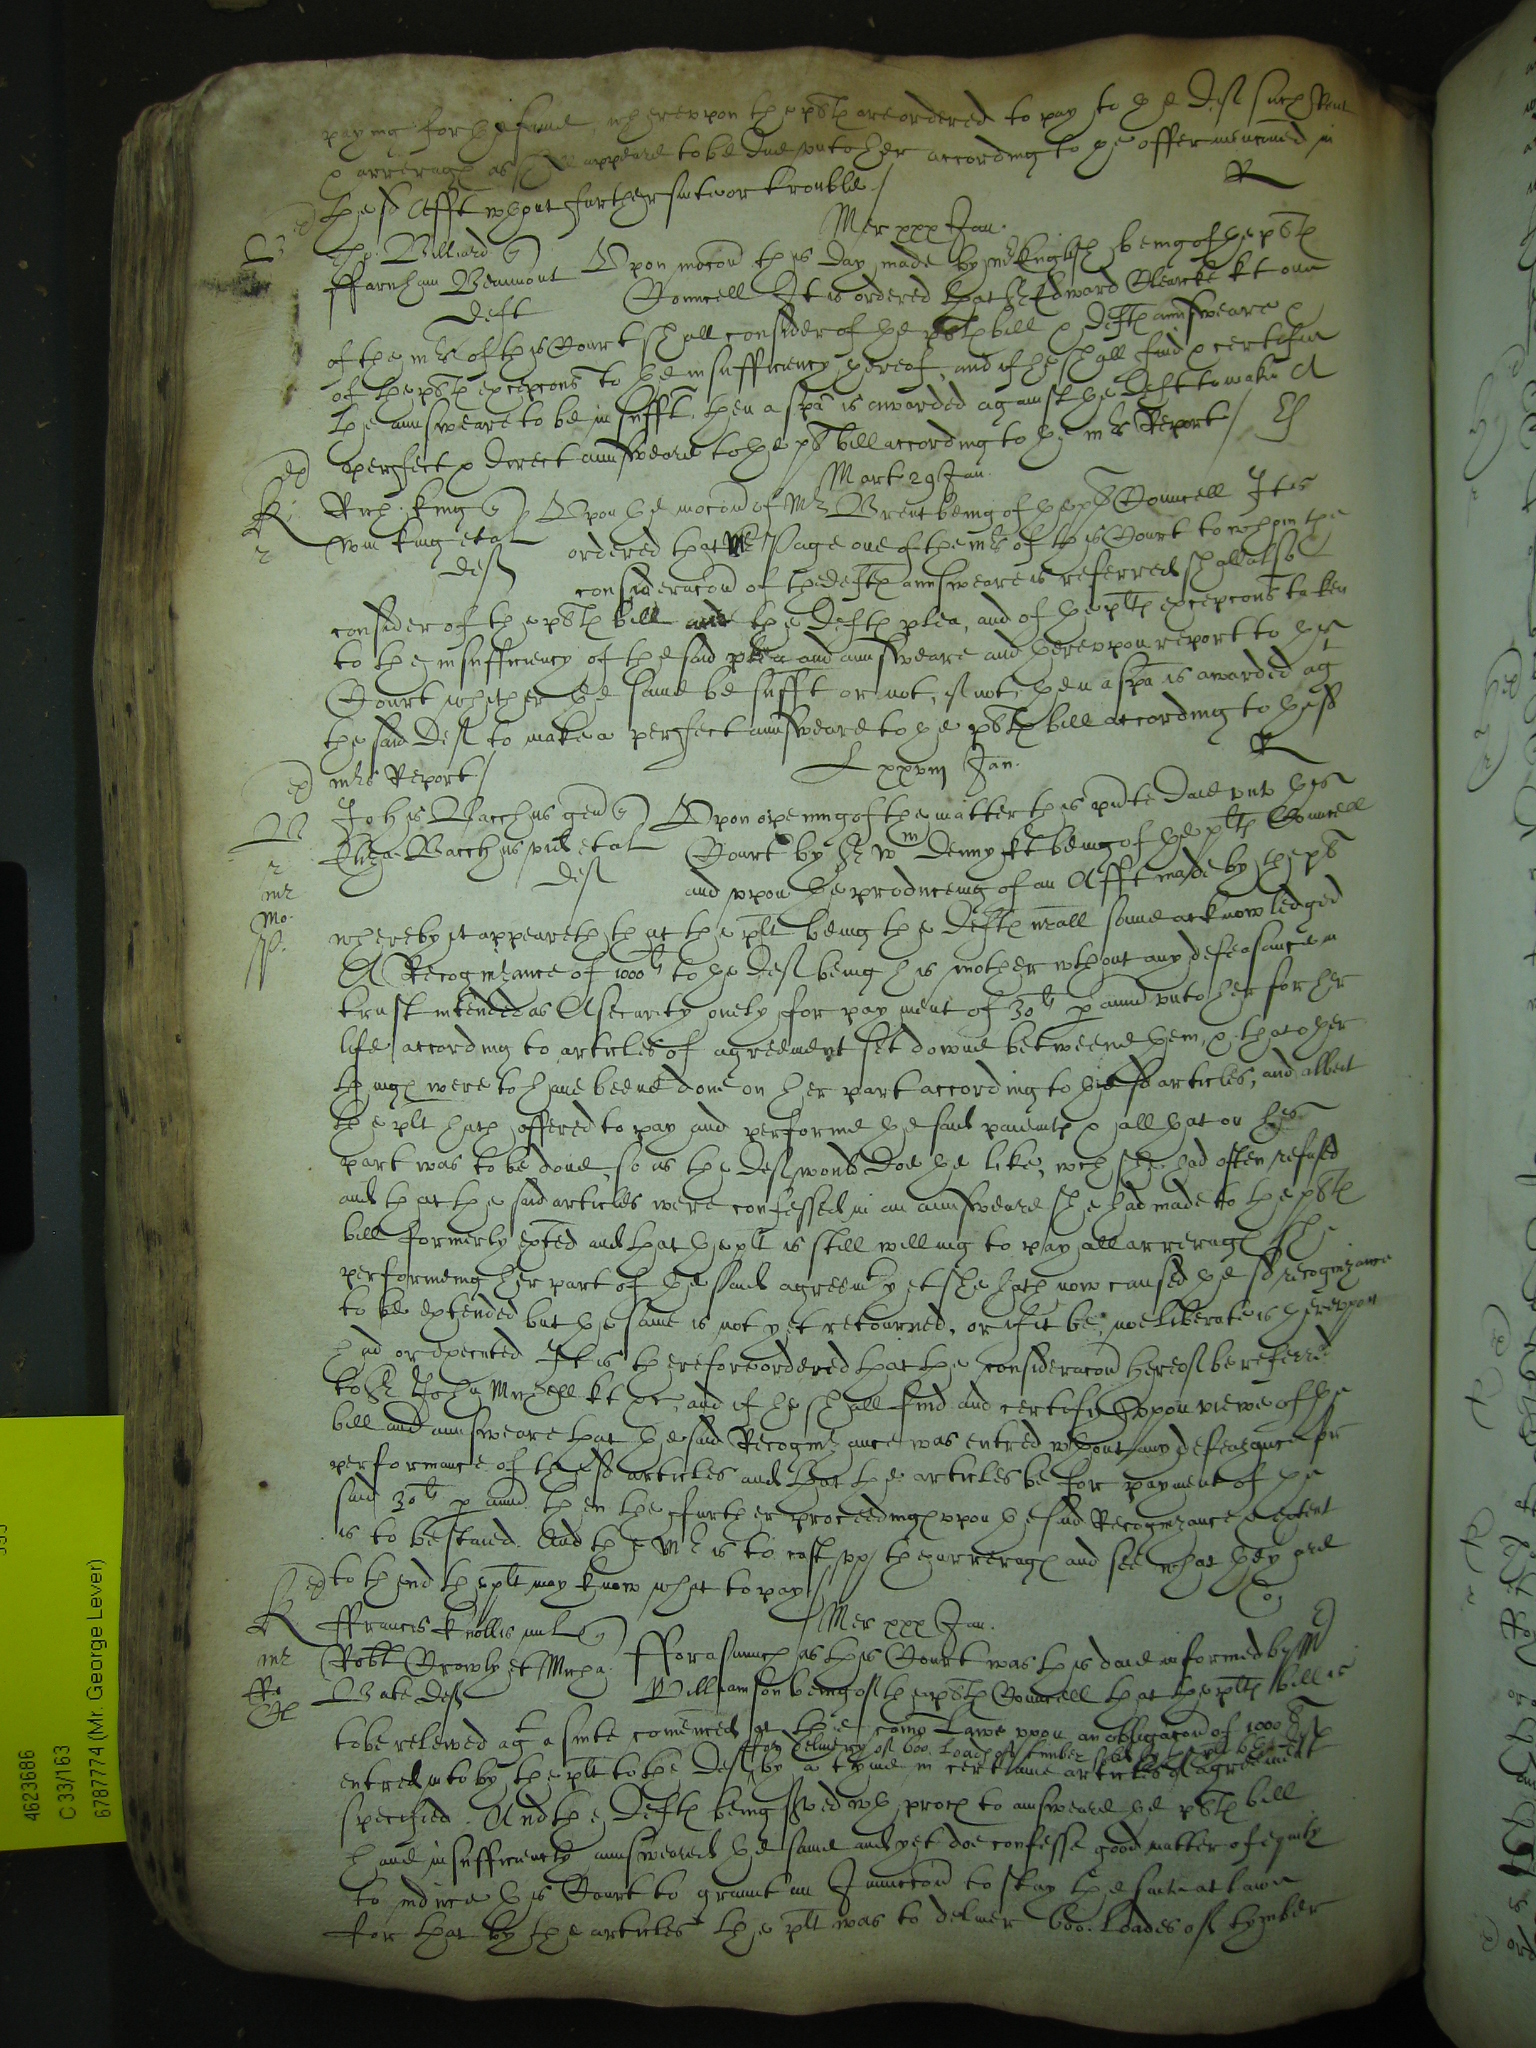 paying for the same, wherevpon the plts are ordered to pay to the Deft such Rent
& arrerags as shall appeare to be due vnto her according to the offer mencioned in
the sd Afft wthout further suite or trouble / R
Mer xxx Jan.
Billiard Upon mocon this day made by mr being of the plts
ffarnham Beaumont Councell It is ordered that Sr Edward Clearke kt one
deft
of the mrs of this Court shall consider of the plts bill & Defts answeare &
of the plts excepcons to the insufficiency thereof, and if he shall find & certifie
the answeare to be insufft, then a spa is awarded against the Deft to make A
a perfect & direct answeare to the plts bill according to the mrs Report /
Mart 29 Jan.
Rich. King Upon the mocon of Mr Brent being of the plts Councell It is
Wm King et al ordered that Mr Page one of the mrs of this Court to whom the
Def consideracon of the defts answeare is referred shall also
consider of the plts bill and the Defts plea, and of the plts excepcons taken
to the insufficiency of the said plea and answeare and therevpon report to this
Court whether the same be sufft or not, if not, then a spa is awarded agt
the said Deft to make a perfect answeare to the plts bill according to the sd
mrs Report / R
L xxviij Jan.
Johis Bacchus gen Upon opening of the matter this pnte daie vnto this
Eliza. Bacchus vid et al Court by Sr Wm Denny kt being of the plts Councell
Def and vpon the produceing of an Afft made by the plt
whereby it appeareth that the plt being the Defts nrall sonne acknowledged
A Recognizance of 1000li to the Deft being his mother wthout any defeasance in
trust intended as A security onely for payment of 30li p annu vnto her for her
life according to articles of agreement set downe betweene them, & that other
things were to haue beene done on her part according to the sd articles, and albeit
the plt hath offered to pay and performe the said paiemts & all that on his
part was to be done, so as the Deft would doe the like, wch she had often refused
and that the said articles were confessed in an answeare she had made to the plts
bill formerly exted and that the plt is still willing to pay all arrerags she
performeing her part of the said agreemt yet she hath now caused the sd recognizance
to be extended but the same is not yet retourned, or if it be, noe liberate is therevpon
had or executed It is therefore ordered that the consideracon hereof be referred
to Sr John Michell kt &c, and if he shall find and certifie vpon viewe of the
bill and answeare that the said Recognizance was entred wthout any defeazance for
performance of the sd articles and that the articles be for payment of the
said 30li p annu then the further proceedings vpon the said Recognizance & extent
is to be staied. And the Mr is to cast vp the arrerags and see what they are
to thend the plt may know what to pay /
Mer xxx Jan.
ffrancis Knollis mil fforasmuch as this Court was this daie informed by Mr
Robt Crowly et Micha. Williamson being of the plts Councell that the plts bill is
Wake Def
to be releived agt a suite comenced at the comon Lawe vpon an obligacon of 1000li
entred into by the plt to the Deft for deliuery of 600. Loads of timber by a tyme in certaine articles of agreement
specified. And the Defts being serued wth proces to answeare the plts bill
haue insufficiently answeared the same and yet doe confesse good matter of equity
to induce this Court to graunt an Iniunccon to stay the suite at lawe
for that by the articles the plt was to deliuer 600. Loades of tymber
4623686
C 33/163
6787774 (Mr. George Lever)